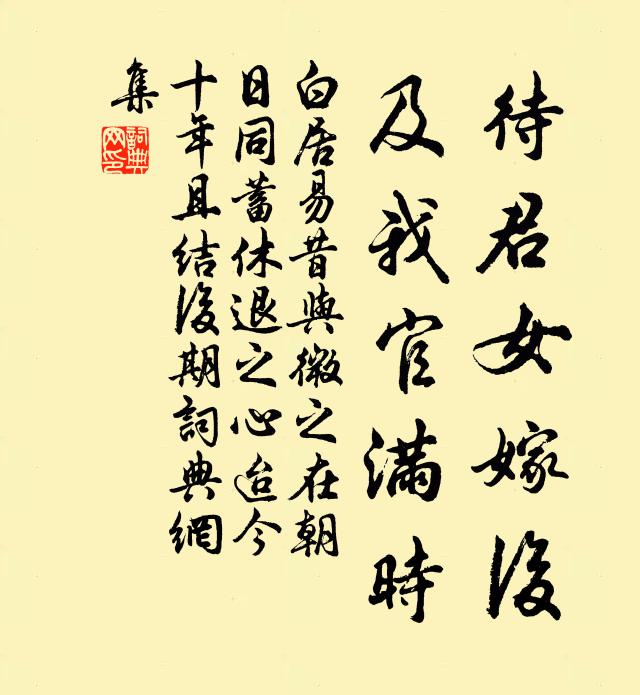 待君女嫁後
及我官滿時
白居易昔與微之在朝
日同蓄休退之心迨今
十年且結後期詞典網
集
詞典
网印